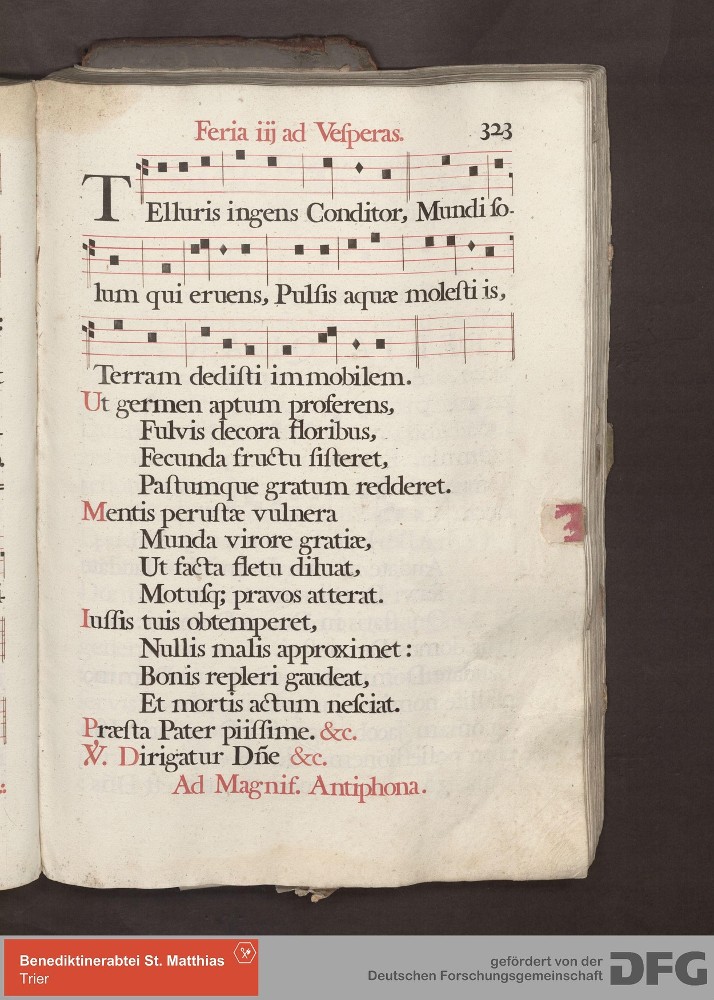 Feria iij ad Veſperas. 323
TElluris ingens Conditor, Mundi ſo-
lum qui eruens, Pulſis aquæ moleſtiis,
Terram dediſti immobilem.
Ut germen aptum proferens,
Fulvis decora floribus,
Fecunda fructu ſiſteret,
Paſtumque gratum redderet.
Mentis peruſtæ vulnera
Munda virore gratiæ,
Ut facta fletu diluat,
Motuſq; pravos atterat.
Iuſſis tuis obtemperet,
Nullis malis approximet:
Bonis repleri gaudeat,
Et mortis actum neſciat.
Præſta Pater piiſſime. &c.
℣. Dirigatur Dñe &c.
Ad Magnif. Antiphona.
Benediktinerabtei St. Matthias
Trier
gefördert von der
Deutschen Forschungsgemeinschaft DFG